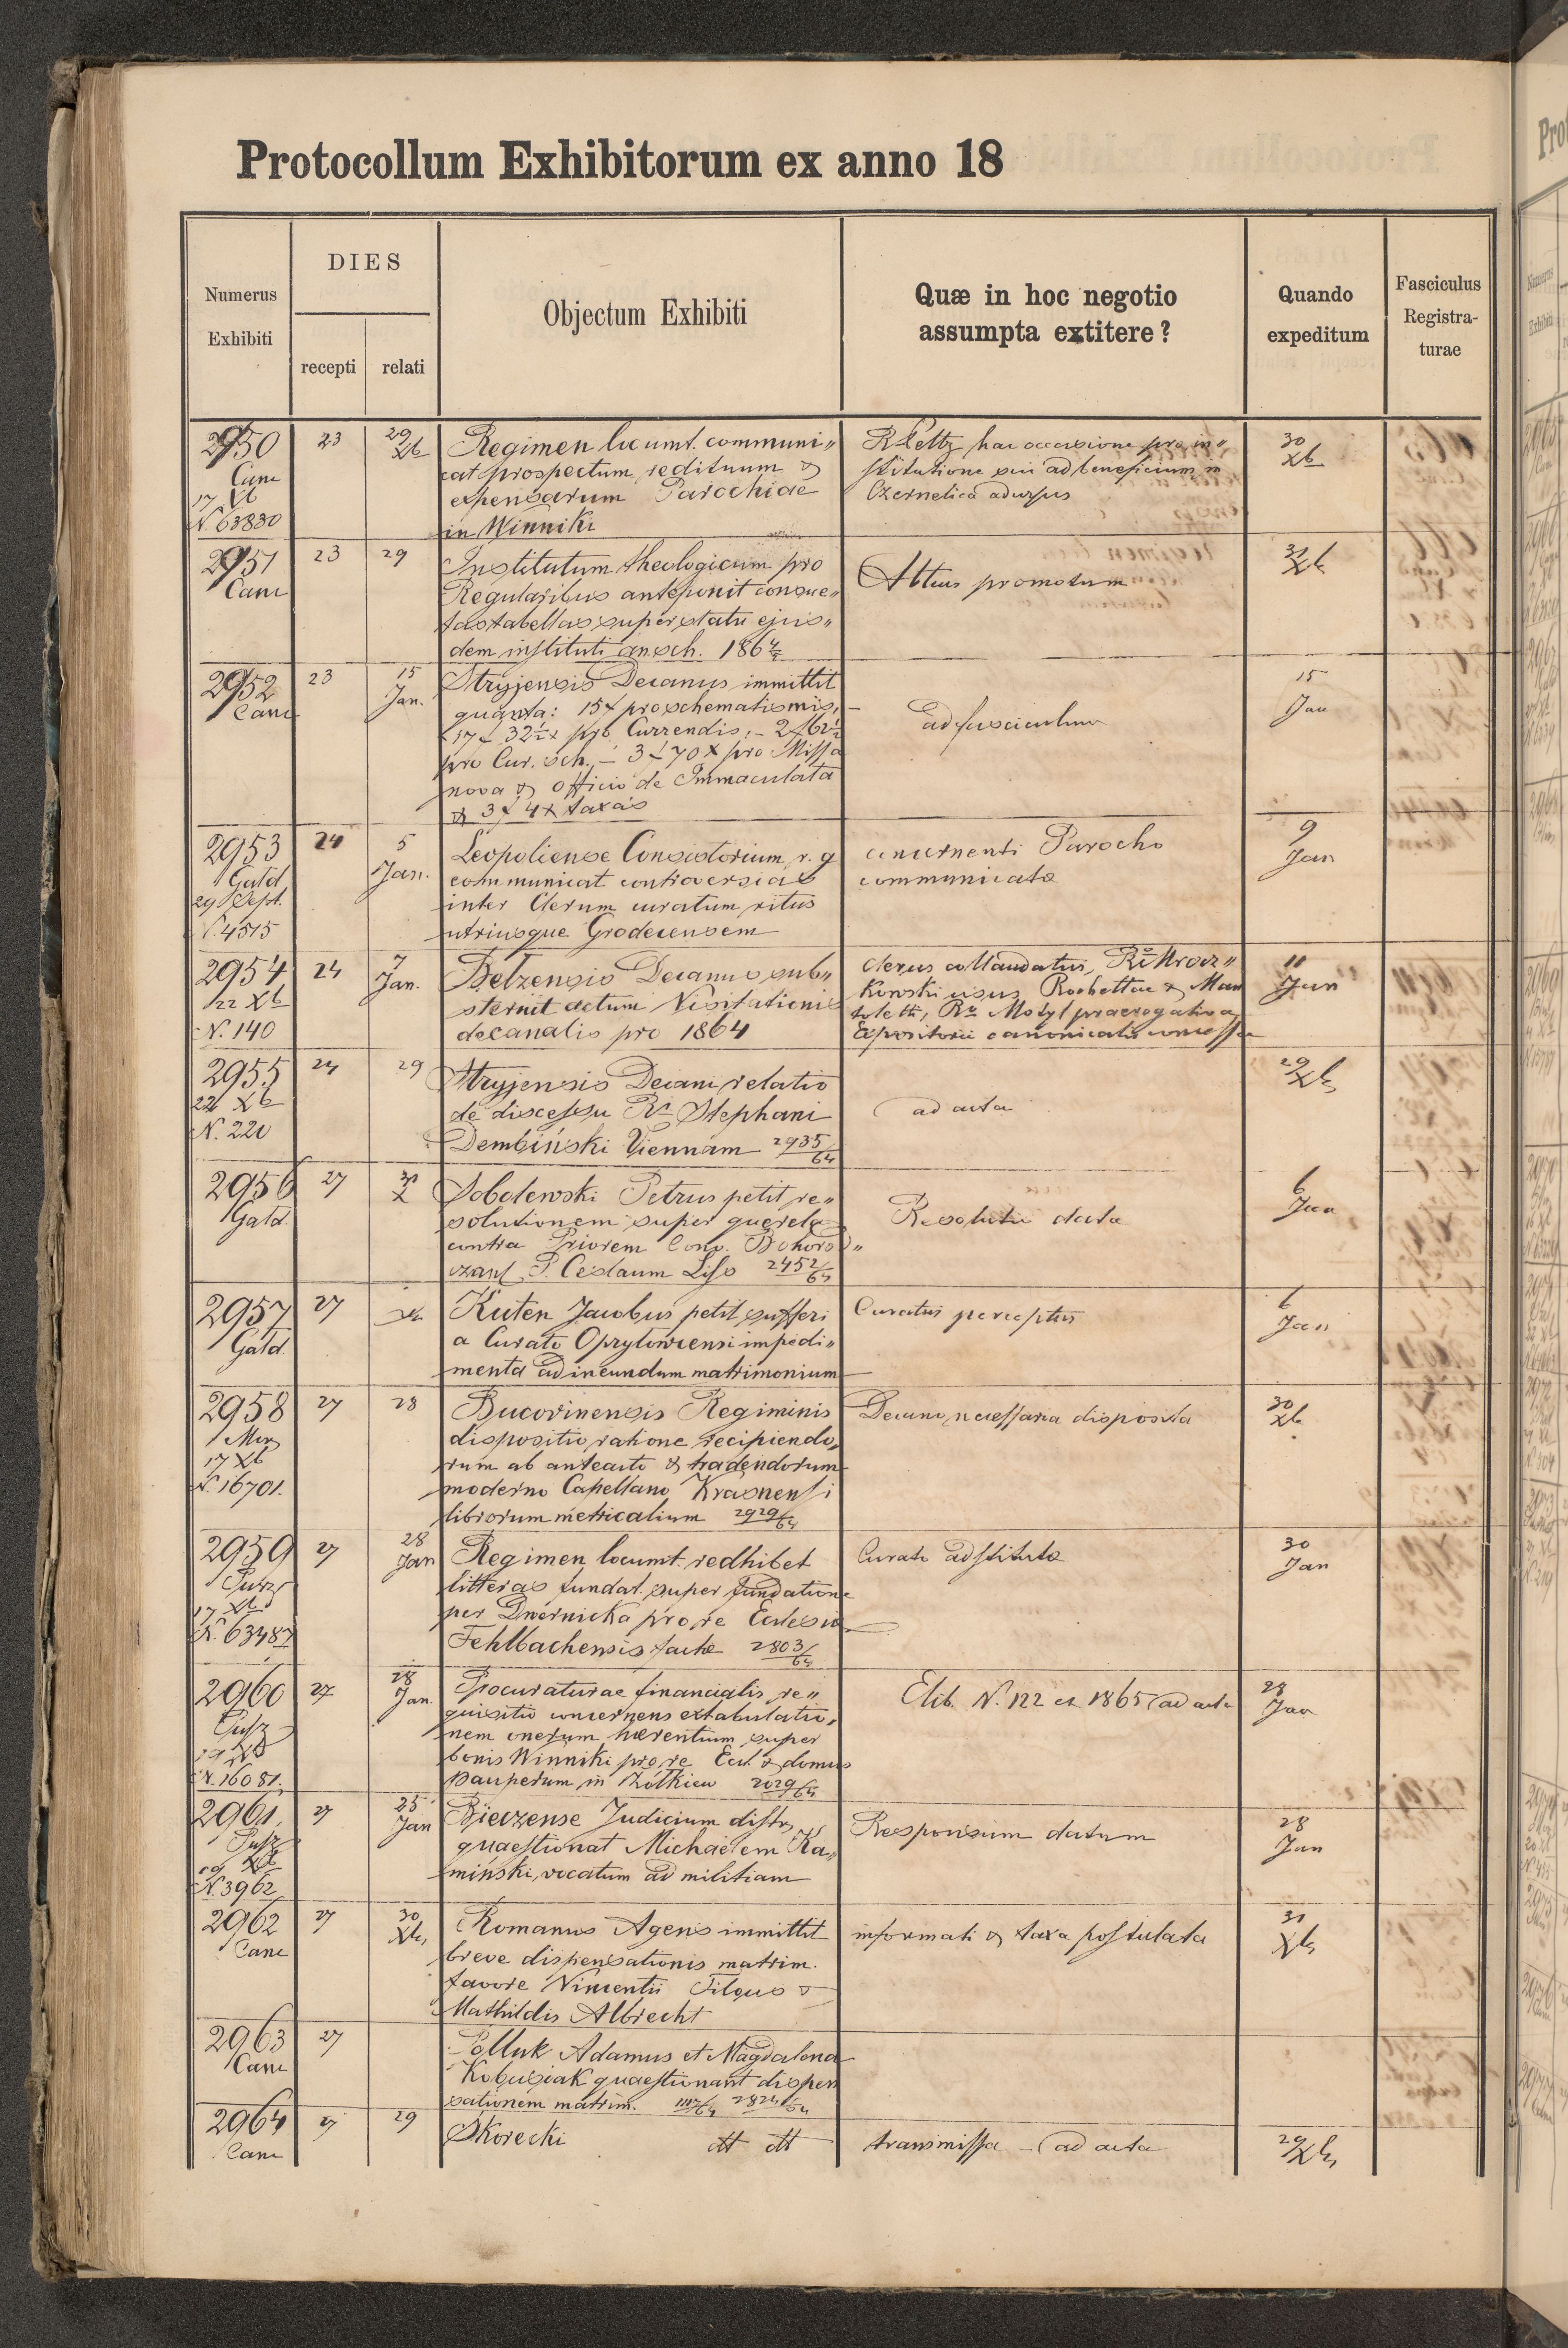 Protocollum Exhibitorum ex anno 18
Numerus
Exhibiti
DIES
recepti
relati
Objectum Exhibiti
Quæ in hoc negotio
assumpta extitere?
Quando
expeditum
Fasciculus
Registra-
turae
2950
Canc
17 Xb
N. 63830
23
29
Xb
Regimen locumt. communi„
cat prospectum redituum &
expensarum Parochiae
in Winniki
hac occasione pro in„
stitutione sui ad beneficium in
Czernelica
30
Xb
2951
Canc
23
29
Institutum theologicum pro
Regularibus anteponit consue„
tas tabellas super statu ejus„
dem instituti an sch. 186
Altius promotum
31
Xb
2952
Canc
23
15
Jan.
Stryjensis Decanus immittit
quanta: 15 pro schematismis,
17 32½ x pro Currendis, –
pro Cur. sch., – 3 70 x pro Missa
nova & officio de Immaculata
& 3 4 x taxas
ad fasciculum
15
Jan
2953
Gald
29 Sept.
N. 4515
24
5
Jan.
Leopoliense Consistorium r. g
communicat controversias
inter Clerum curatum ritus
utriusque Grodecensem
concernenti Parocho
communicata
9
Jan
2954
22 Xb
N. 140
24
7
Jan.
Belzensis Decanus sub„
sternit actum Visitationis
decanalis pro 1864
Clerus collaudatus,
Konski usus Rochettae & Man
toletti, Rs Motyl praerogativa
Expositorii canonicalis concessa
11
Jan
2955
22 Xb
N. 220
24
29
Stryjensis Decani relatio
de discessu Rs Stephani
Dembiński Viennam 2935/64
ad acta
29
Xb
2956
Gald
27
Sobolewski Petrus petit re„
solutionem super querela
contra Priorem Conv. Bohorod„
czan P. Ceslaum Liss 2452/64
Resolutio data
6
Jan
2957
Gald
27
Kuten Jacobus petit sufferi
a Curato Opryłowcensi impedi„
menta ad ineundum matrimonium
Curatus perceptus
6
Jan
2958
Mer
17 Xb
N. 16701.
27
28
Bucovinensis Regiminis
dispositio ratione recipiendo„
rum ab anteacto & tradendorum
moderno Capellano Krasnensi
librorum metricalium 2929/64
Decano necessaria disposita
30
Xb
2959
17 Xb
N. 63487
27
28
Jan
Regimen locumt. redhibet
litteras fundat. super fundatione
per Dwernicka pro re Ecclesia
Fehlbachensis facta 2803/64
Curato adstituta
30
Jan
2960
19 Xb
N. 16081.
27
28
Jan.
Procuraturae financialis re„
quisitio concernens extabulatio„
nem onerum haerentium super
bonis Winniki pro re Eccl. & domus
pauperum in Żółkiew 2029/64
Elib. N. 122 ex 1865 ad acta
28
Jan
2961.
19 Xb
N. 3962
27
25
Jan
Bieczense Judicium distr.
quaestionat Michaelem Ka„
miński, vocatum ad militiam
Responsum datum
28
Jan
2962
Canc
27
30
Xb
Romanus Agens immittit
breve dispensationis matrim.
favore Vincentii Tilous &
Mathildis Albrecht
informati & taxa postulata
31
Xb
2963
Canc
27
Polluk Adamus et Magdalena
Kobusiak quaestionant dispen
sationem matrim. 2824/64
2964
Canc
27
29
Skorecki dtt dtt
transmissa – ad acta
29
Xb